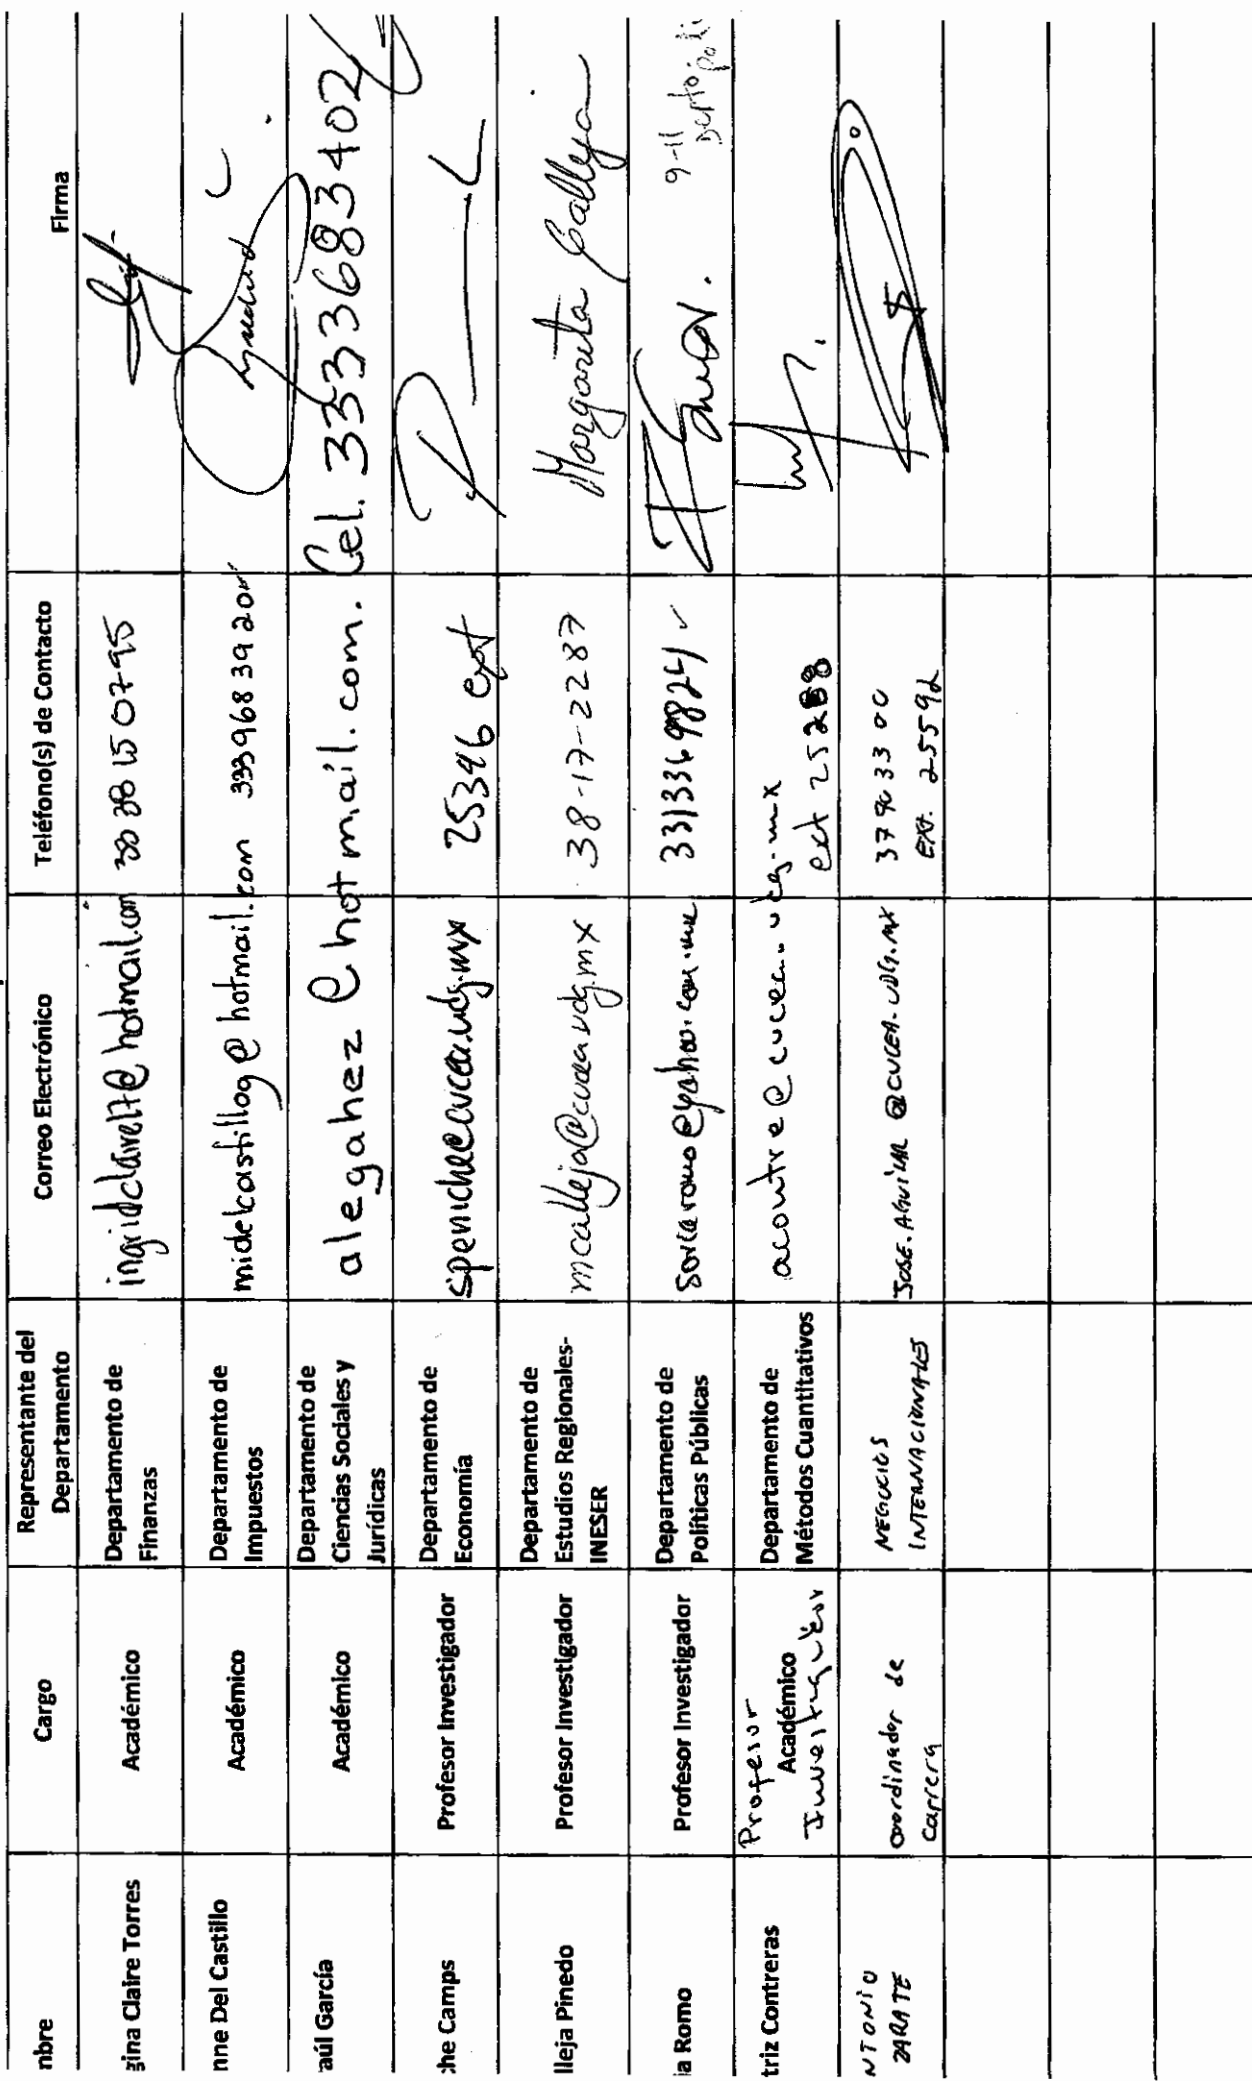 nbre
Cargo
Representante del
Departamento
Correo Electrónico
Teléfono(s) de Contacto
Firma
gina Claire Torres
Académico
Departamento de
Finanzas
nne Del Castillo
Académico
Departamento de
Impuestos
midelcastillog@hotmail.com
aúl García
Académico
Departamento de
Ciencias Sociales y
Jurídicas
alegahez@hotmail.com.
Cel. 3333683402
he Camps
Profesor Investigador
Departamento de
Economía
speniche@cucea.udg.mx
25396 ext
lleja Pinedo
Profesor Investigador
Departamento de
Estudios Regionales-
INESER
mcalleja@cucea.udg.mx
38-17-2287
Margarita Calleja
ia Romo
Profesor Investigador
Departamento de
Políticas Públicas
9-11
triz Contreras
Profesor
Académico
Investigador
Departamento de
Métodos Cuantitativos
acontre@cucea.udg.mx
NTONIO
ZARATE
coordinador de
carrera
NEGOCIOS
INTERNACIONALES
JOSE.AGUILAR@CUCEA.UDG.MX
EXT. 25592